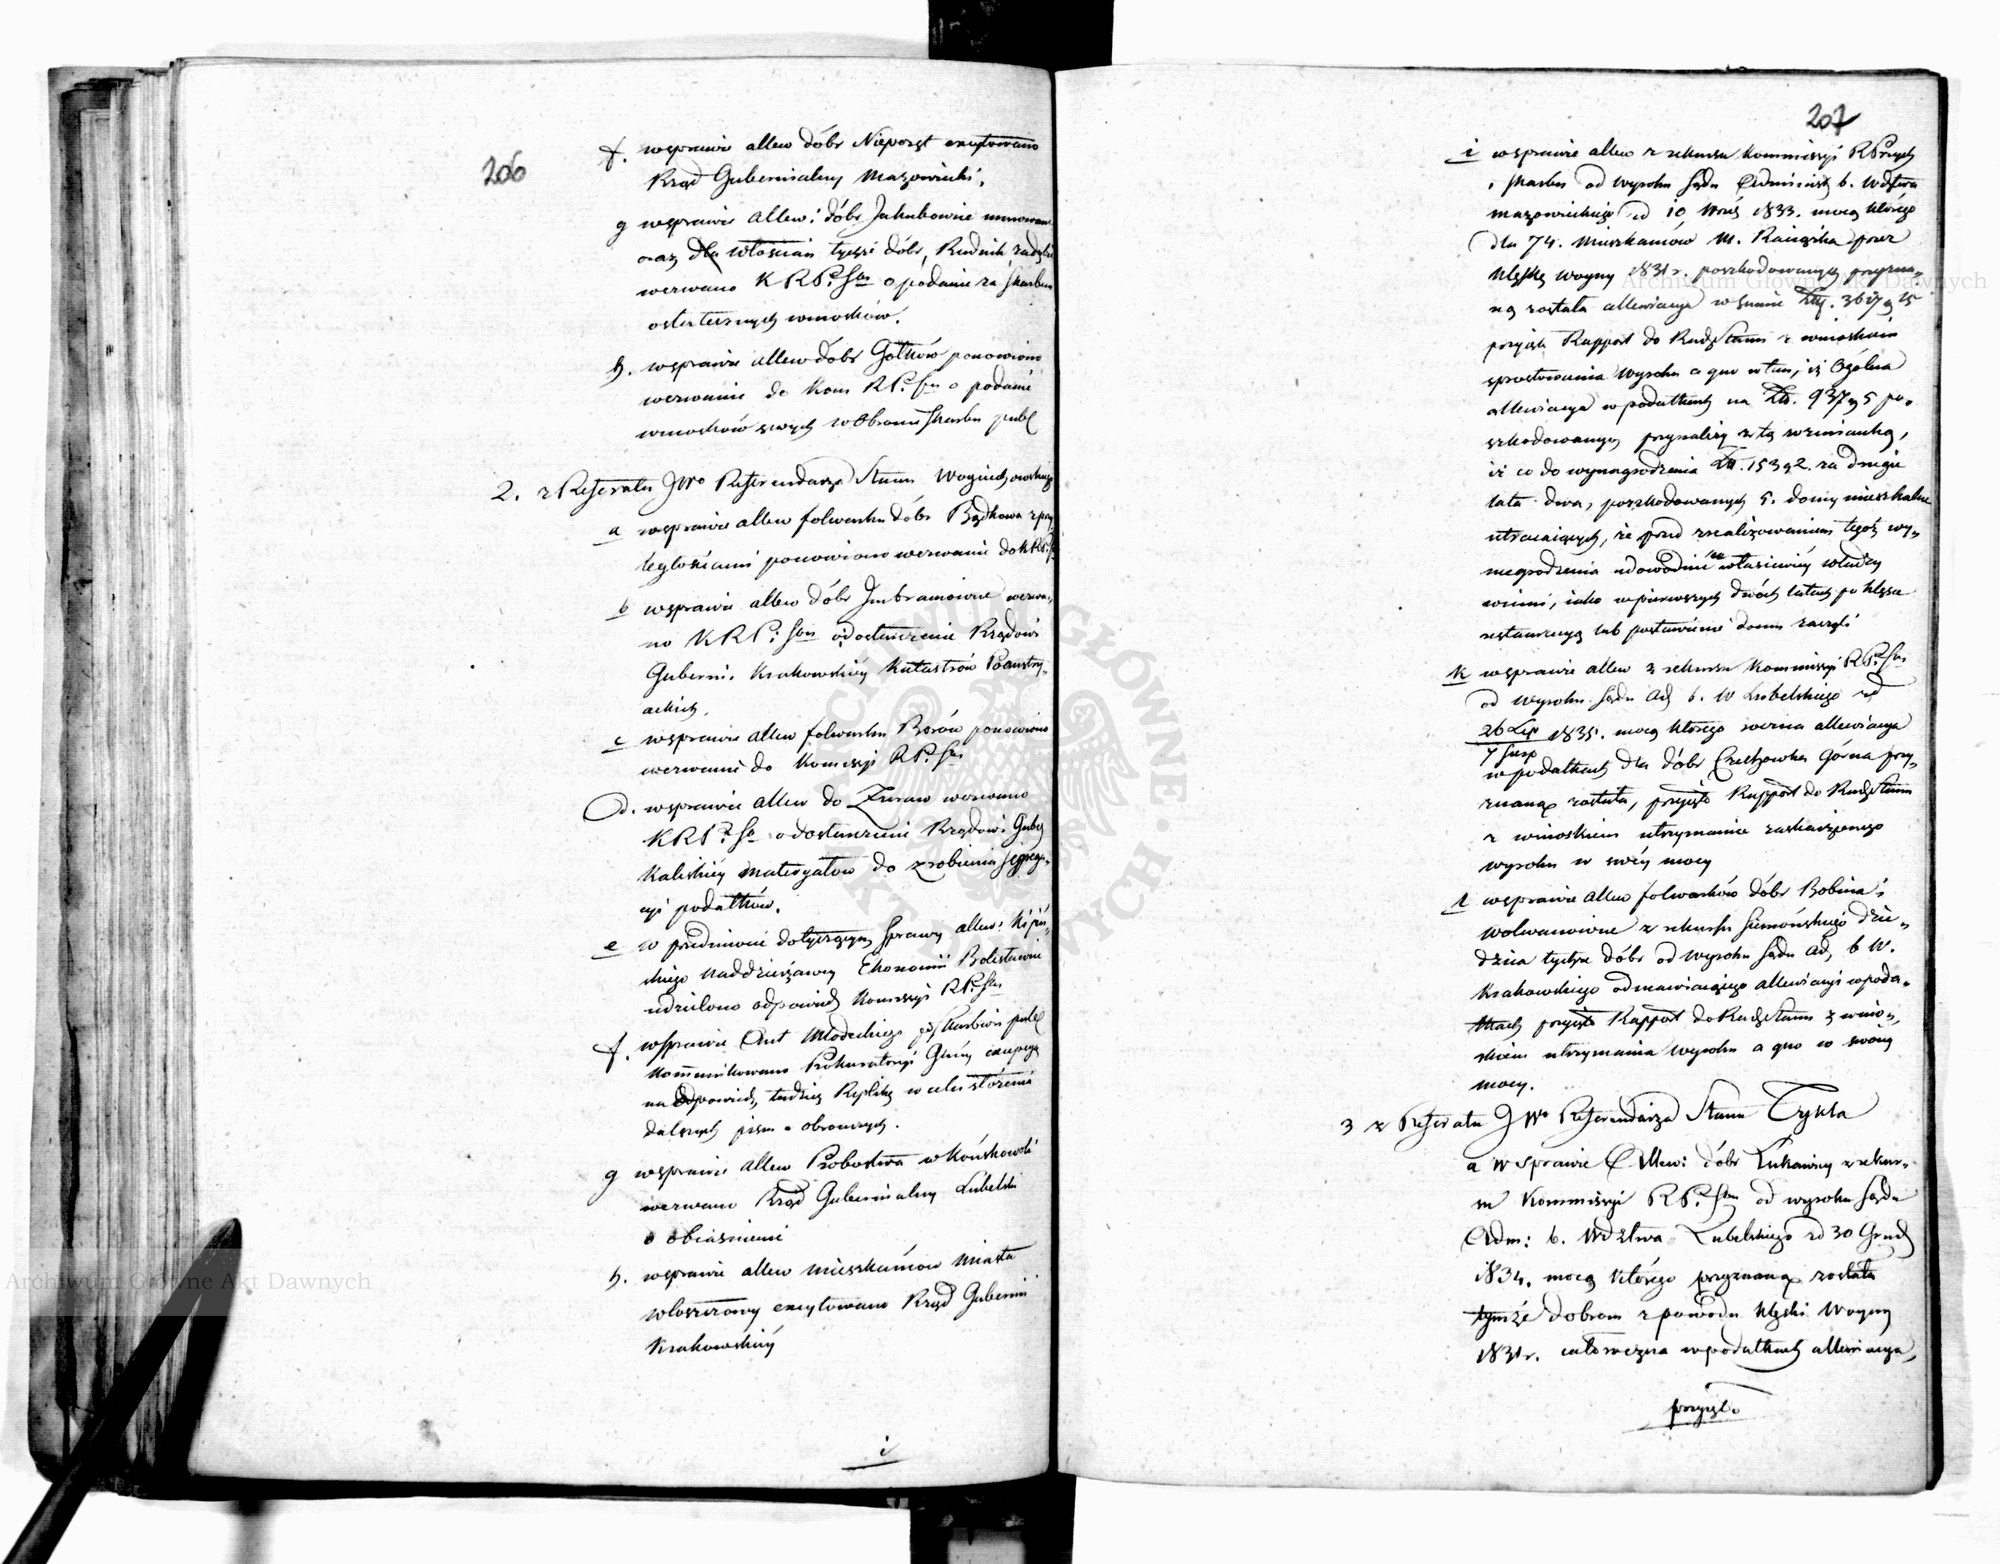 206
f. wsprawie allew dóbr Nieporęt excytowano
Rząd Gubernialny Mazowiecki.
g wsprawie allew: dóbr Jakubowice
oraz dla włościan tychże dóbr, Rudnik
wezwano KRP: Sbu o podanie za Skarbem
ostatecznych wniosków.
h. wsprawie allew dóbr Gołków ponowiono
wezwanie do Kom RP. Sbu o podanie
wniosków swych w Obronie Skarbu publ
2. z Referatu JWo Referendarza Stanu Woyciechowskiego
a wsprawie allew folwarku dóbr Bądkowa z przy
ległościami ponowiono wezwanie do KRPS
b wsprawie allew dóbr Imbramowice wezwa-
no KRP: Sbu o dostarczenie Rządowi
Guberni. Krakowskiey Katastrów Poaustry-
ackich.
c wsprawie allew folwarku Borów ponowiono
wezwanie do Komissyi RP: Sbu
d. wsprawie allew do Żuraw wezwano
KRP: Sbu o dostarczenie Rządowi Gube
Kaliskiey materyałów do zrobienia segrega-
cyi podatków.
e w przedmiocie dotyczącym sprawy allew:
skiego Naddzierżawcy Ekonomii Bolesławie
udzielono odpowiedź Komissyi RP: Sbu
f. wsprawie Ant Młodeckiego Skarbowi publ
Kommunikowano Prokuratoryi Głney
na Odpowiedź, tudzież Replikę w celu złożenia
dalszych pism obronczych.
g wsprawie allew Probostwa w Końskowoli
wezwano Rząd Gubernialny Lubelski
o obiaśnienie
h. wsprawie allew mieszkańców Miasta
Włoszczowy excytowano Rząd Gubernii
Krakowskiey
i
207
i wsprawie allew z rekursu Kommissyi RPrzych
i Skarbu od wyroku Sądu Administ b. Wdztwa
Mazowieckiego od 10 Wrześ 1833. mocą którego
dla 74. Mieszkańców M. Raciąża przez
klęskę woyny 1831 r. poszkodowanych przyzna-
ną została allewiacya w summie Złp.
przyięto Rapport do Rady Stanu z wnioskiem
sprostowania Wyroku a quo w tém, iż Ogólna
allewiacya w podatkach na Złp. 937 g 5 po-
szkodowanym przynależy z tą wzmianką,
iż co do wynagrodzenia Złp. 153 g 2. za drugie
lata dwa, poszkodowanych 5. domy mieszkalne
utracaiących, że przed zrealizowaniem tegoż wy-
nagrodzenia udowodnić właściwéy władzy
winni, iako w pierwszych dwóch latach po klęsce
restauracyą lub postawienie domu zaczęli
k wsprawie allew z rekursu Kommissyi RP: Sbu
od wyroku Sądu Ad b. W Lubelskiego zd
26 Lip
7 Sierp 1835. mocą którego roczna allewiacya
w podatkach dla dóbr Czechowka Górna przy-
znaną została, przyięto Rapport do Rady Stanu
z wnioskiem utrzymania zaskarżonego
wyroku w swéy mocy
l wsprawie allew folwarków dóbr Bobina i
Wolwanowice z rekursu Siemońskiego dzie-
dzica tychże dóbr od wyroku Sądu Ad, b W.
Krakowskiego odmawiaiącego allewiacyi w poda-
tkach przyięto Rapport do Rady Stanu z wnio-
skiem utrzymania Wyroku a quo w swoiey
mocy.
3 z Referatu JWo Referendarza Stanu Tykla
a w Sprawie Allew: dóbr Łukawicy z rekur-
su Kommissyi RP: Sbu od wyroku Sądu
Adm: b. Wdztwa Lubelskiego zd 30 Grud
1834. mocą którego przyznaną została
tymże dobrom z powodu klęski Woyny
1831 r. całoroczna w podatkach allewiacya,
przyięto
Archiwum Główne Akt Dawnych
Archiwum Główne Akt Dawnych
ARCHIWUM GŁÓWNE AKT DAWNYCH